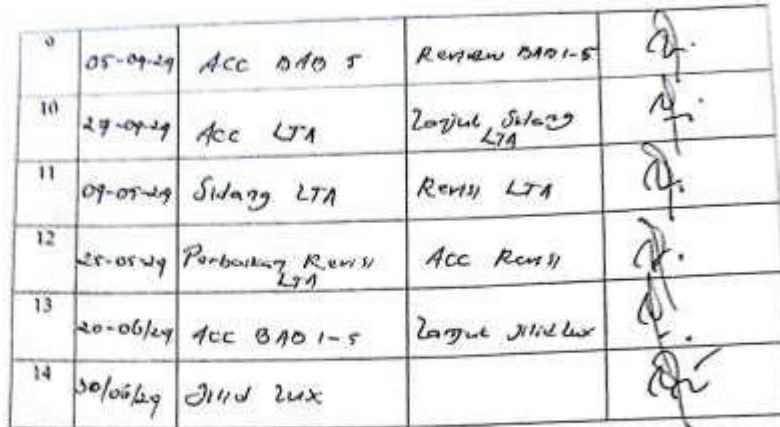 9 05-04-24 ACC BAB 5 Review BAB 1-5
10 27-04-24 ACC LTA Lanjut Sidang
LTA
11 09-05-24 Sidang LTA Revisi LTA
12 25-05-24 Perbaikan Revisi ACC Revisi
LTA
13 20-06/24 ACC BAB 1-5 Lanjut Jilid Lux
14 30/06/24 Jilid Lux